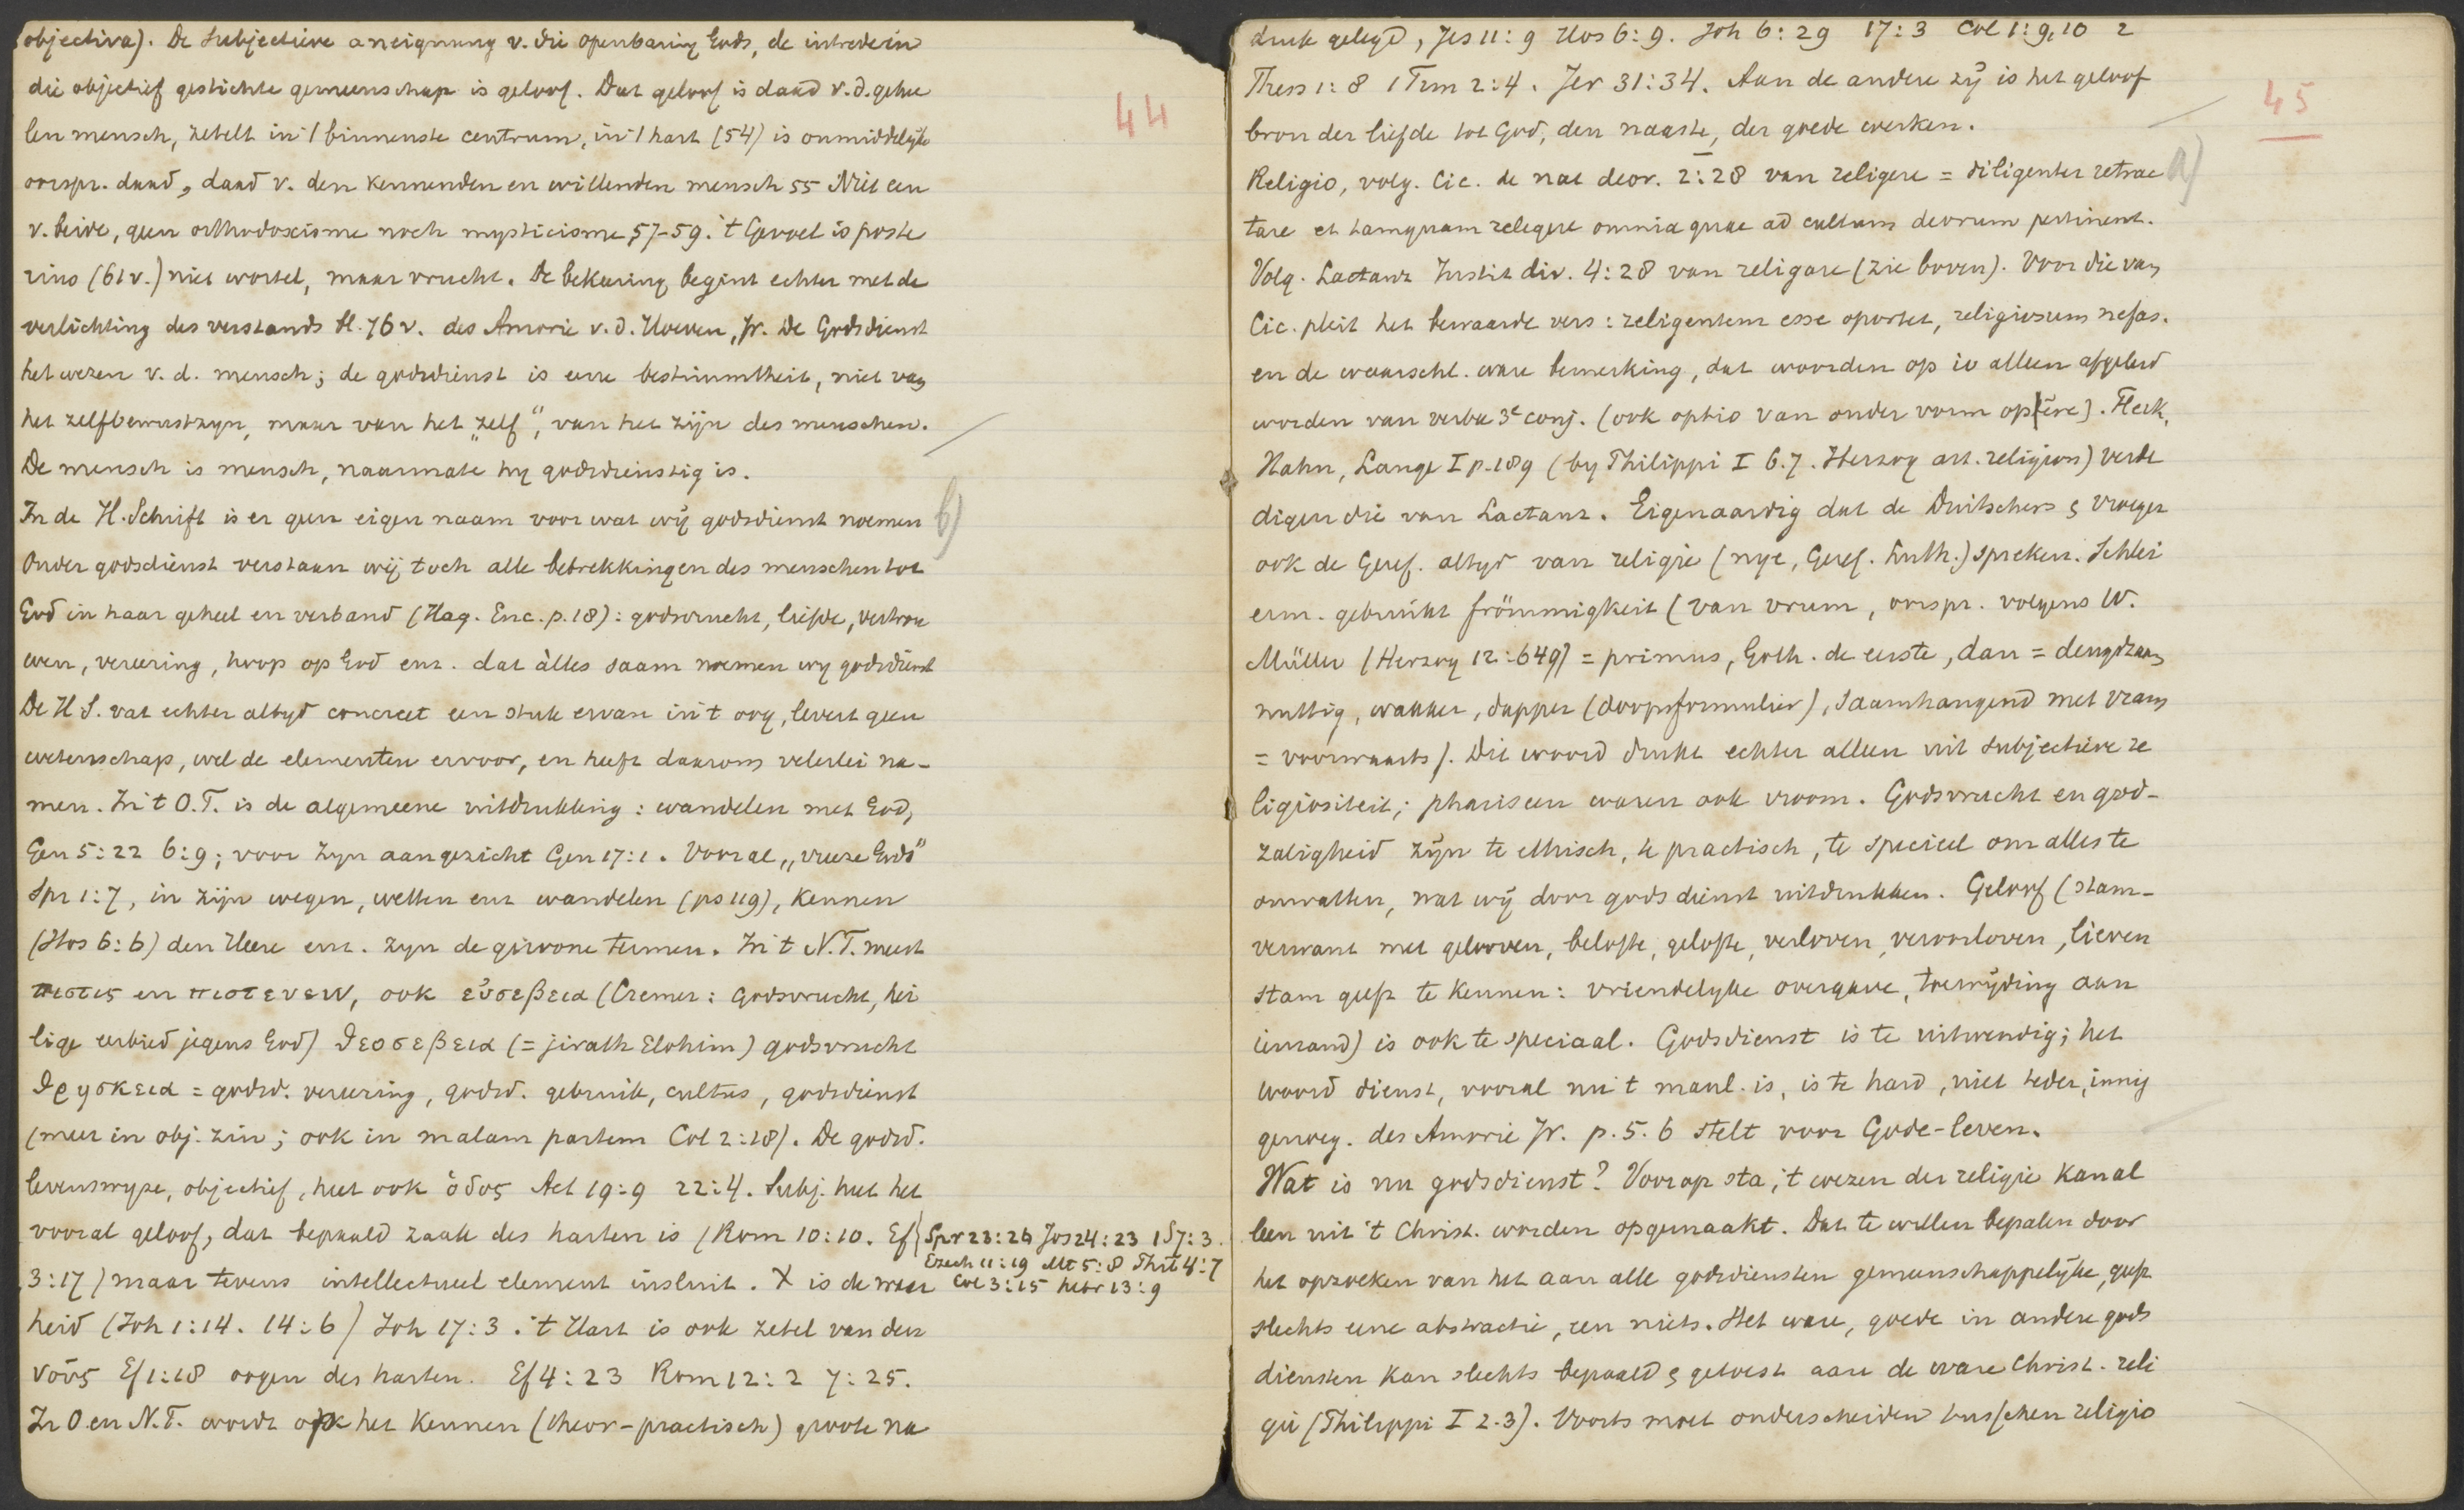 objectiva). De subjectieve aneignung v. die openbaring Gods, de intrede in
die objectief gestichte gemeenschap is geloof. Dat geloof is daad v. d. gehee
len mensch, zetelt in 't binnenste centrum, in 't hart (54) is onmiddelijke
oorspr. daad, daad v. den kennenden en willenden mensch 55 Niet een
v. beide, geen orthodoxisme noch mysticisme 57-59. 't Gevoel is poste
rius (61 v.) niet wortel, maar vrucht. De bekeering begint echter met de
verlichting des verstands bl. 76 v. des Amorie v. d. Hoeven, Jr. De Godsdienst
het wezen v. d. mensch; de godsdienst is eene bestimmtheit, niet van
het zelfbewustzyn, maar van het „zelf", van het zijn des menschen.
De mensch is mensch, naarmate hy godsdienstig is.
In de H. Schrift is er geen eigen naam voor wat wij godsdienst noemen b)
Onder godsdienst verstaan wij toch alle betrekkingen des menschen tot
God in haar geheel en verband (Hag. Enc. p. 18): godsvrucht, liefde, vertrou
wen, vereering, hoop op God enz. dat àlles saam noemen wy godsdienst
De H S. vat echter altyd concreet een stuk ervan in 't oog, levert geen
wetenschap, wel de elementen ervoor, en heeft daarom velerlei na-
men. In 't O.T. is de algemeene uitdrukking: wandelen met God,
Gen 5:22 6:9; voor zyn aangezicht Gen 17:1. Vooral „vreeze Gods"
Spr 1:7, in zijn wegen, wetten enz wandelen (ps 119), kennen
(Hos 6:6) den Heere enz. zyn de gewone termen. In 't N.T. meest
πιστις en πιστευειν, ook εὐσεβεια (Cremer: Godsvrucht, hei
lige eerbied jegens God) θεοσεβεια (= jirath Elohim) godsvrucht
θρησκεια = godsd. vereering, godsd. gebruik, cultus, godsdienst
(meer in obj. zin; ook in malam partem Col 2:18). De godsd.
levenswyze, objectief, heet ook ὁδος Act 19:9 22:4. Subj. heet het
vooral geloof, dat bepaald zaak des harten is (Rom 10:10. Ef { Spr 23:26 Jos 24:23 1 S 7:3.
Ezech 11:19 Mt 5:8 Phil 4:7
3:17) maar tevens intellectueel element insluit. X is de waar Col 3:15 hebr 13:9
heid (Joh 1:14. 14:6) Joh 17:3. 't Hart is ook zetel van den
νοῦς Ef 1:18 oogen des harten. Ef 4:23 Rom 12:2 7:25.
In O. en N.T. wordt ook het kennen (theor-practisch) groote na
44
druk gelegd, Jes 11:9 Hos 6:9. Joh 6:29 17:3 Col 1:9,10 2
Thess 1:8 1 Tim 2:4. Jer 31:34. Aan de andere zij is het geloof
bron der liefde tot God, den naaste, der goede werken.
Religio, volg. Cic. de nat deor. 2:28 van religere = diligenter retrac a)
tare et tamquam relegere omnia quae ad cultum deorum pertinent.
Volg. Lactanz Instit div. 4:28 van religare (zie boven). Voor die van
Cic. pleit het bewaarde vers: religentem esse oportet, religiosum nefas.
en de waarschl. ware bemerking, dat woorden op io alleen afgeleid
worden van verba 3e conj. (ook optio van ouder vorm optĕre). Fleck,
Hahn, Lange I p. 189 (by Philippi I 6.7. Herzog art. religion) verde
digen die van Lactanz. Eigenaardig dat de Duitschers & vroeger
ook de Geref. altyd van religie (nye, Geref. Luth.) spreken. Schlei
erm. gebruikt frömmigkeit (van vrum, oorspr. volgens W.
Müller (Herzog 12:649) = primus, Goth. de eerste, dan = deugdzaam
nuttig, wakker, dapper (doopsformulier), saamhangend met vram
= voorwaarts). Dit woord drukt echter alleen uit subjectieve re
ligiositeit; phariseen waren ook vroom. Godsvrucht en god-
zaligheid zijn te ethisch, te practisch, te specieel om alles te
omvatten, wat wij door godsdienst uitdrukken. Geloof (stam-
verwant met gelooven, belofte, gelofte, verloven, veroorloven, lieven
stam geeft te kennen: vriendelyke overgave, toewijding aan
iemand) is ook te speciaal. Godsdienst is te uitwendig; het
woord dienst, vooral nu 't manl. is, is te hard, niet teder, innig
genoeg. des Amorie Jr. p. 5.6 stelt voor Gode-leven.
Wat is nu godsdienst? Voorop sta, 't wezen der religie kan al
leen uit 't Christ. worden opgemaakt. Dat te willen bepalen door
het opzoeken van het aan alle godsdiensten gemeenschappelijke, geeft
slechts eene abstractie, een niets. Het ware, goede in andere gods
diensten kan slechts bepaald & getoest aan de ware Christ. reli
gie (Philippi I 2.3). Voorts moet onderscheiden tusschen religio
45